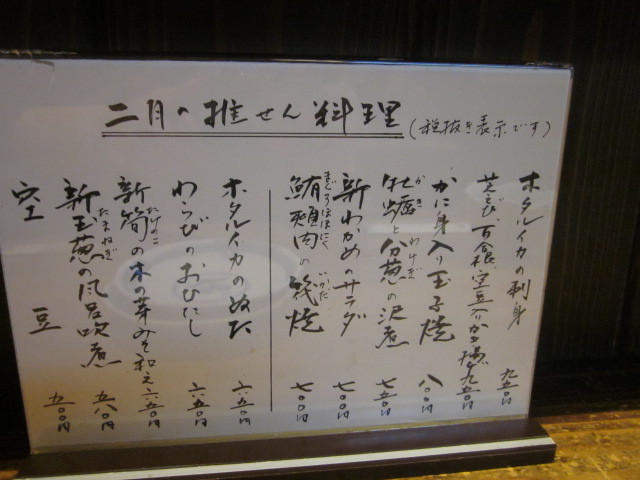 二月の推せん料理 (税抜き表示です)
ホタルイカの刺身 九五〇円
芝えび、百合根、空豆入りかき揚 九五〇円
かに身入り玉子焼 八〇〇円
牡蠣と分葱の沢煮 七五〇円
かき わけぎ
新わかめのサラダ 七〇〇円
鮪頬肉の筏焼 七〇〇円
まぐろほほにく いかだ
ホタルイカのぬた 六五〇円
わらびのおひたし 六五〇円
新筍の木の芽みそ和え 六五〇円
たけのこ
新玉葱の風呂吹煮 五八〇円
たまねぎ
空豆 五〇〇円